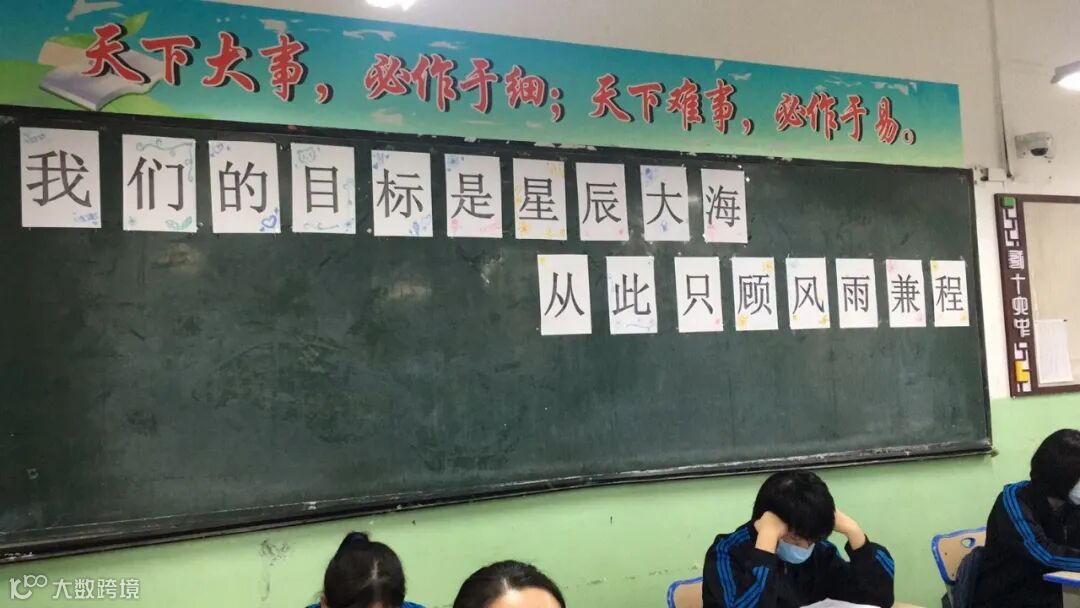 天下大事，必作于细；天下难事，必作于易。
我们的目标是星辰大海
从此只顾风雨兼程
大数跨境